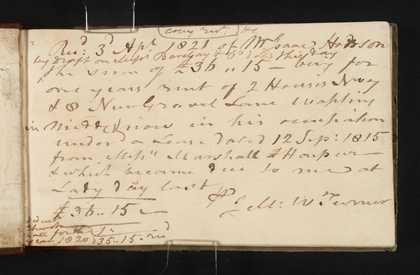 Recd 3d Apl 1821 of Mr Isaac Hodson
by draft on Messrs Barclay & Co this day
the sum of £36..15 – being for
one years rent of 2 Houses No 7
& 8 New Gravel Lane Wapping
in Middx now in his occupation
under a Lease dated 12 Sep: 1815
from Messrs Marshall & Harper
& which became due to me at
Lady Day last
£36..15 –
J M: W Turner
1820 £35..15.